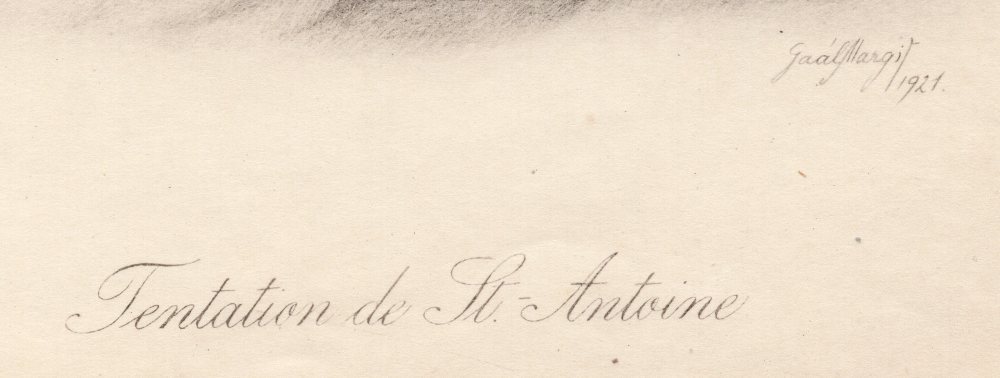 Gaál Margit
1921.
Tentation de St.-Antoine